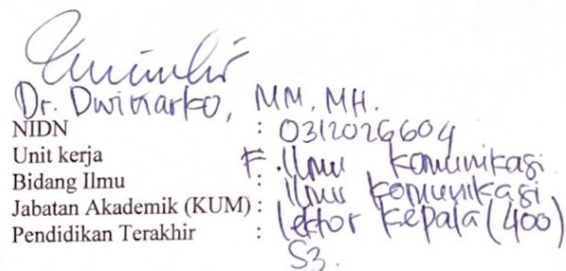 Dr. Dwinarko, MM. MH.
NIDN : 0312026604
Unit kerja : F. Ilmu Komunikasi
Bidang Ilmu : Ilmu Komunikasi
Jabatan Akademik (KUM) : Lektor Kepala (400)
Pendidikan Terakhir : S3.